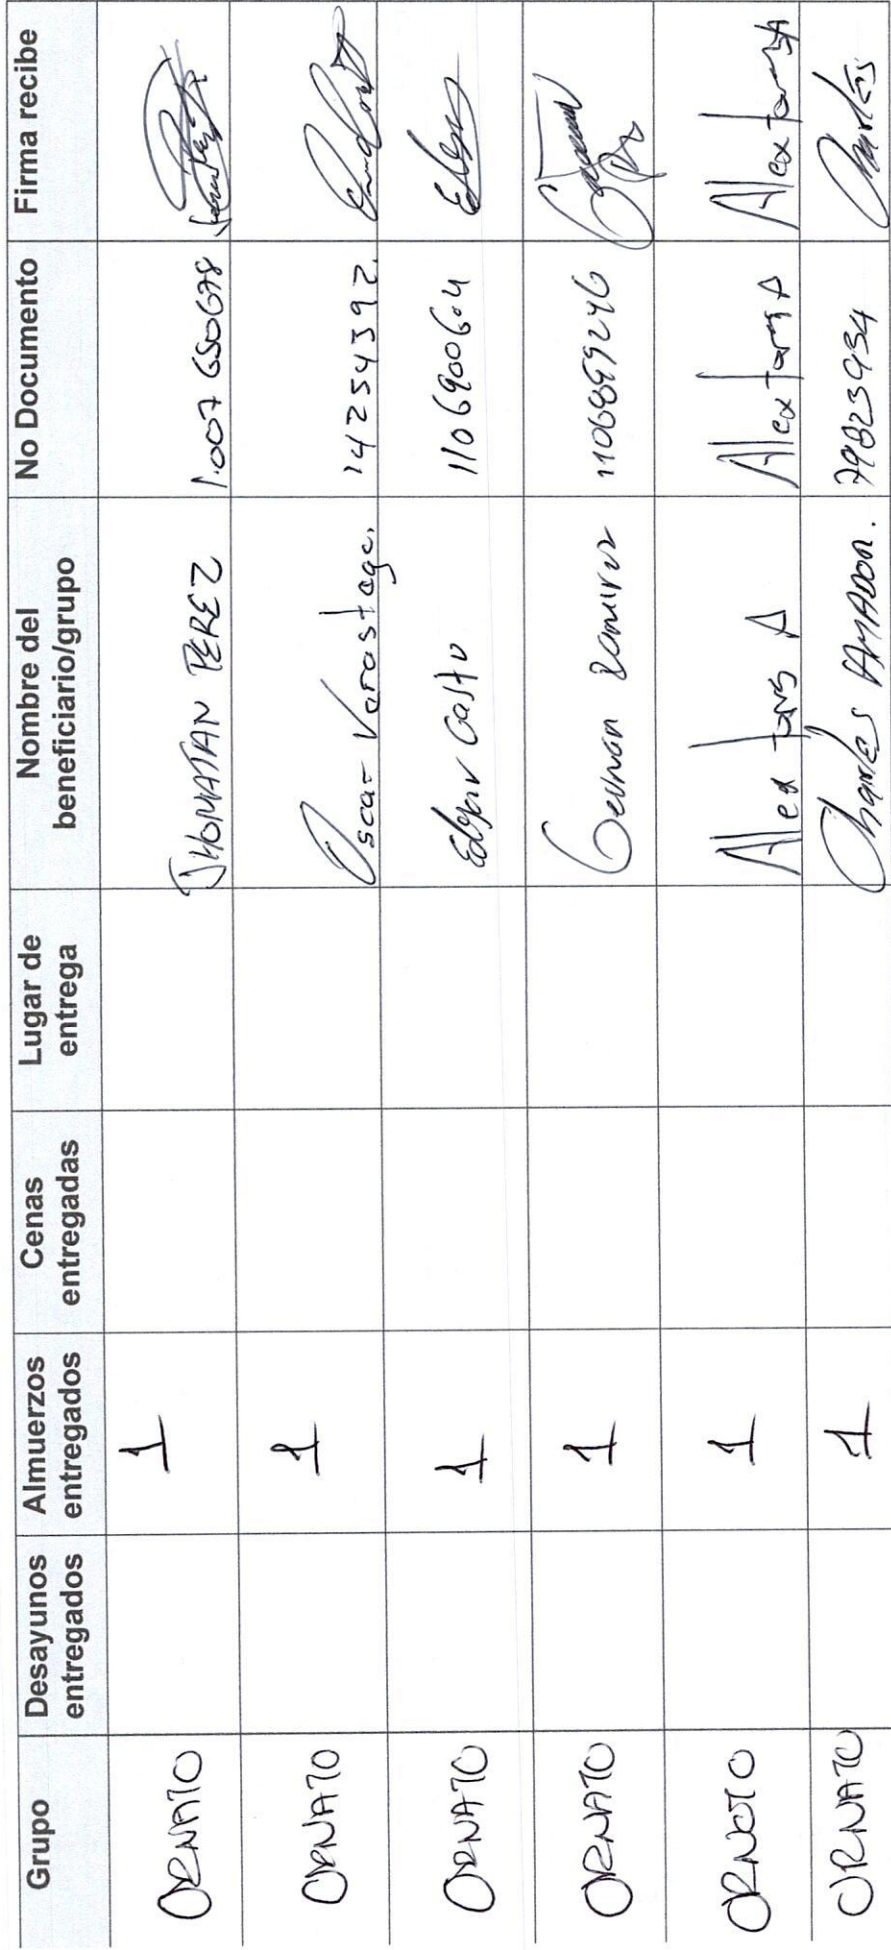 Grupo Desayunos entregados Almuerzos entregados Cenas entregadas Lugar de entrega Nombre del beneficiario/grupo No Documento Firma recibe
ORNATO 1 JHONATAN PEREZ 1.007650678
ORNATO 1 Oscar Verastegc. 14254392.
ORNATO 1 Edgar Castro 1106900604
ORNATO 1 German Ramirez 1106899246
ORNATO 1 Alex A Alex A Alex
ORNATO 1 Charles AMADOR. 79823934 Charles